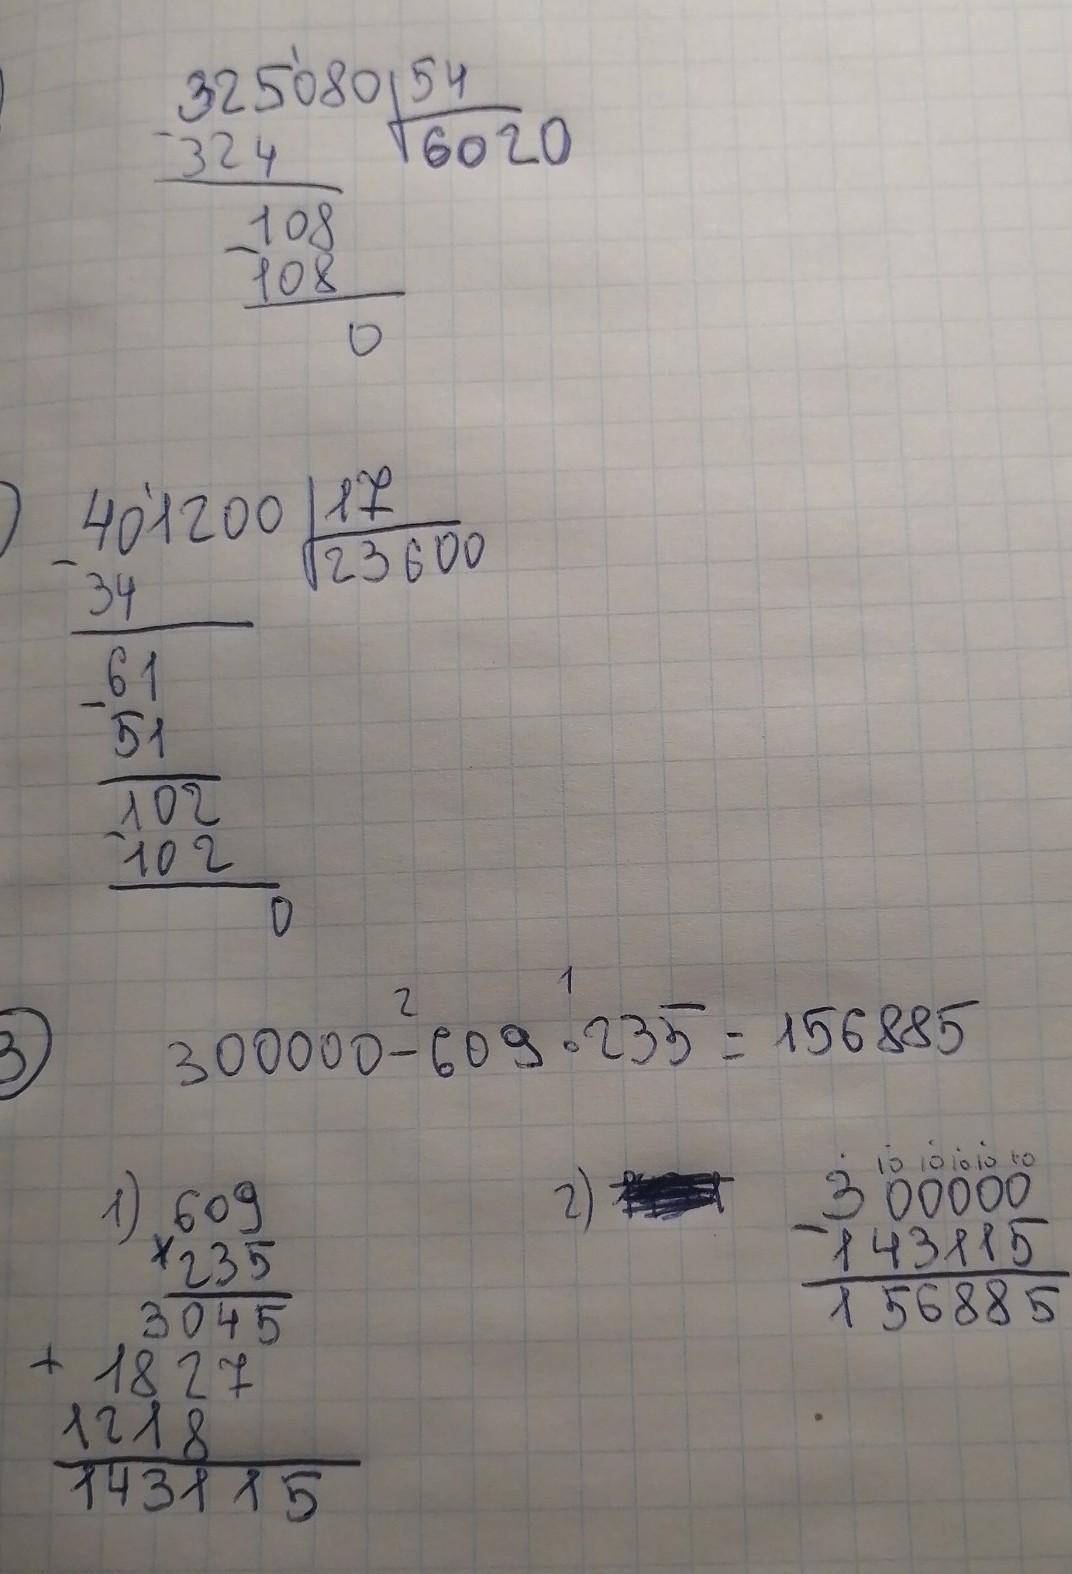 325080 54
-324 6020
108
-108
0
401200 17
-34 23600
61
-51
102
-102
0
2 1
3) 300000-609·235=156885
1) 609
×235
3045
+ 1827
1218
143115
2)
10 10 10 10 10
300000
-143115
156885